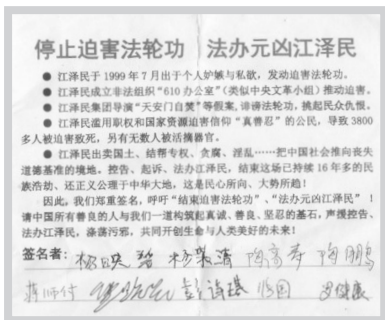 停止迫害法轮功 法办元凶江泽民
● 江泽民于1999年7月出于个人妒嫉与私欲，发动迫害法轮功。
● 江泽民成立非法组织“610办公室”（类似中央文革小组）推动迫害。
● 江泽民集团导演“天安门自焚”等假案，诽谤法轮功，挑起民众仇恨。
● 江泽民滥用职权和国家资源迫害信仰“真善忍”的公民，导致3800
多人被迫害致死，另有无数人被活摘器官。
● 江泽民出卖国土、结帮专权、贪腐、淫乱……把中国社会推向丧失
道德基准的境地。控告、起诉、法办江泽民，结束这场已持续16年多的民
族浩劫、还正义公理于中华大地，这是民心所向、大势所趋！
因此，我们郑重签名，呼吁“结束迫害法轮功”、“法办元凶江泽民”！
请中国所有善良的人与我们一道构筑起真诚、善良、坚忍的基石，声援控告、
法办江泽民，涤荡污邪，共同开创生命与人类美好的未来！
签名者：杨映 杨荣清 陶高寿 陶鹏
蒋师付 彭诗琪